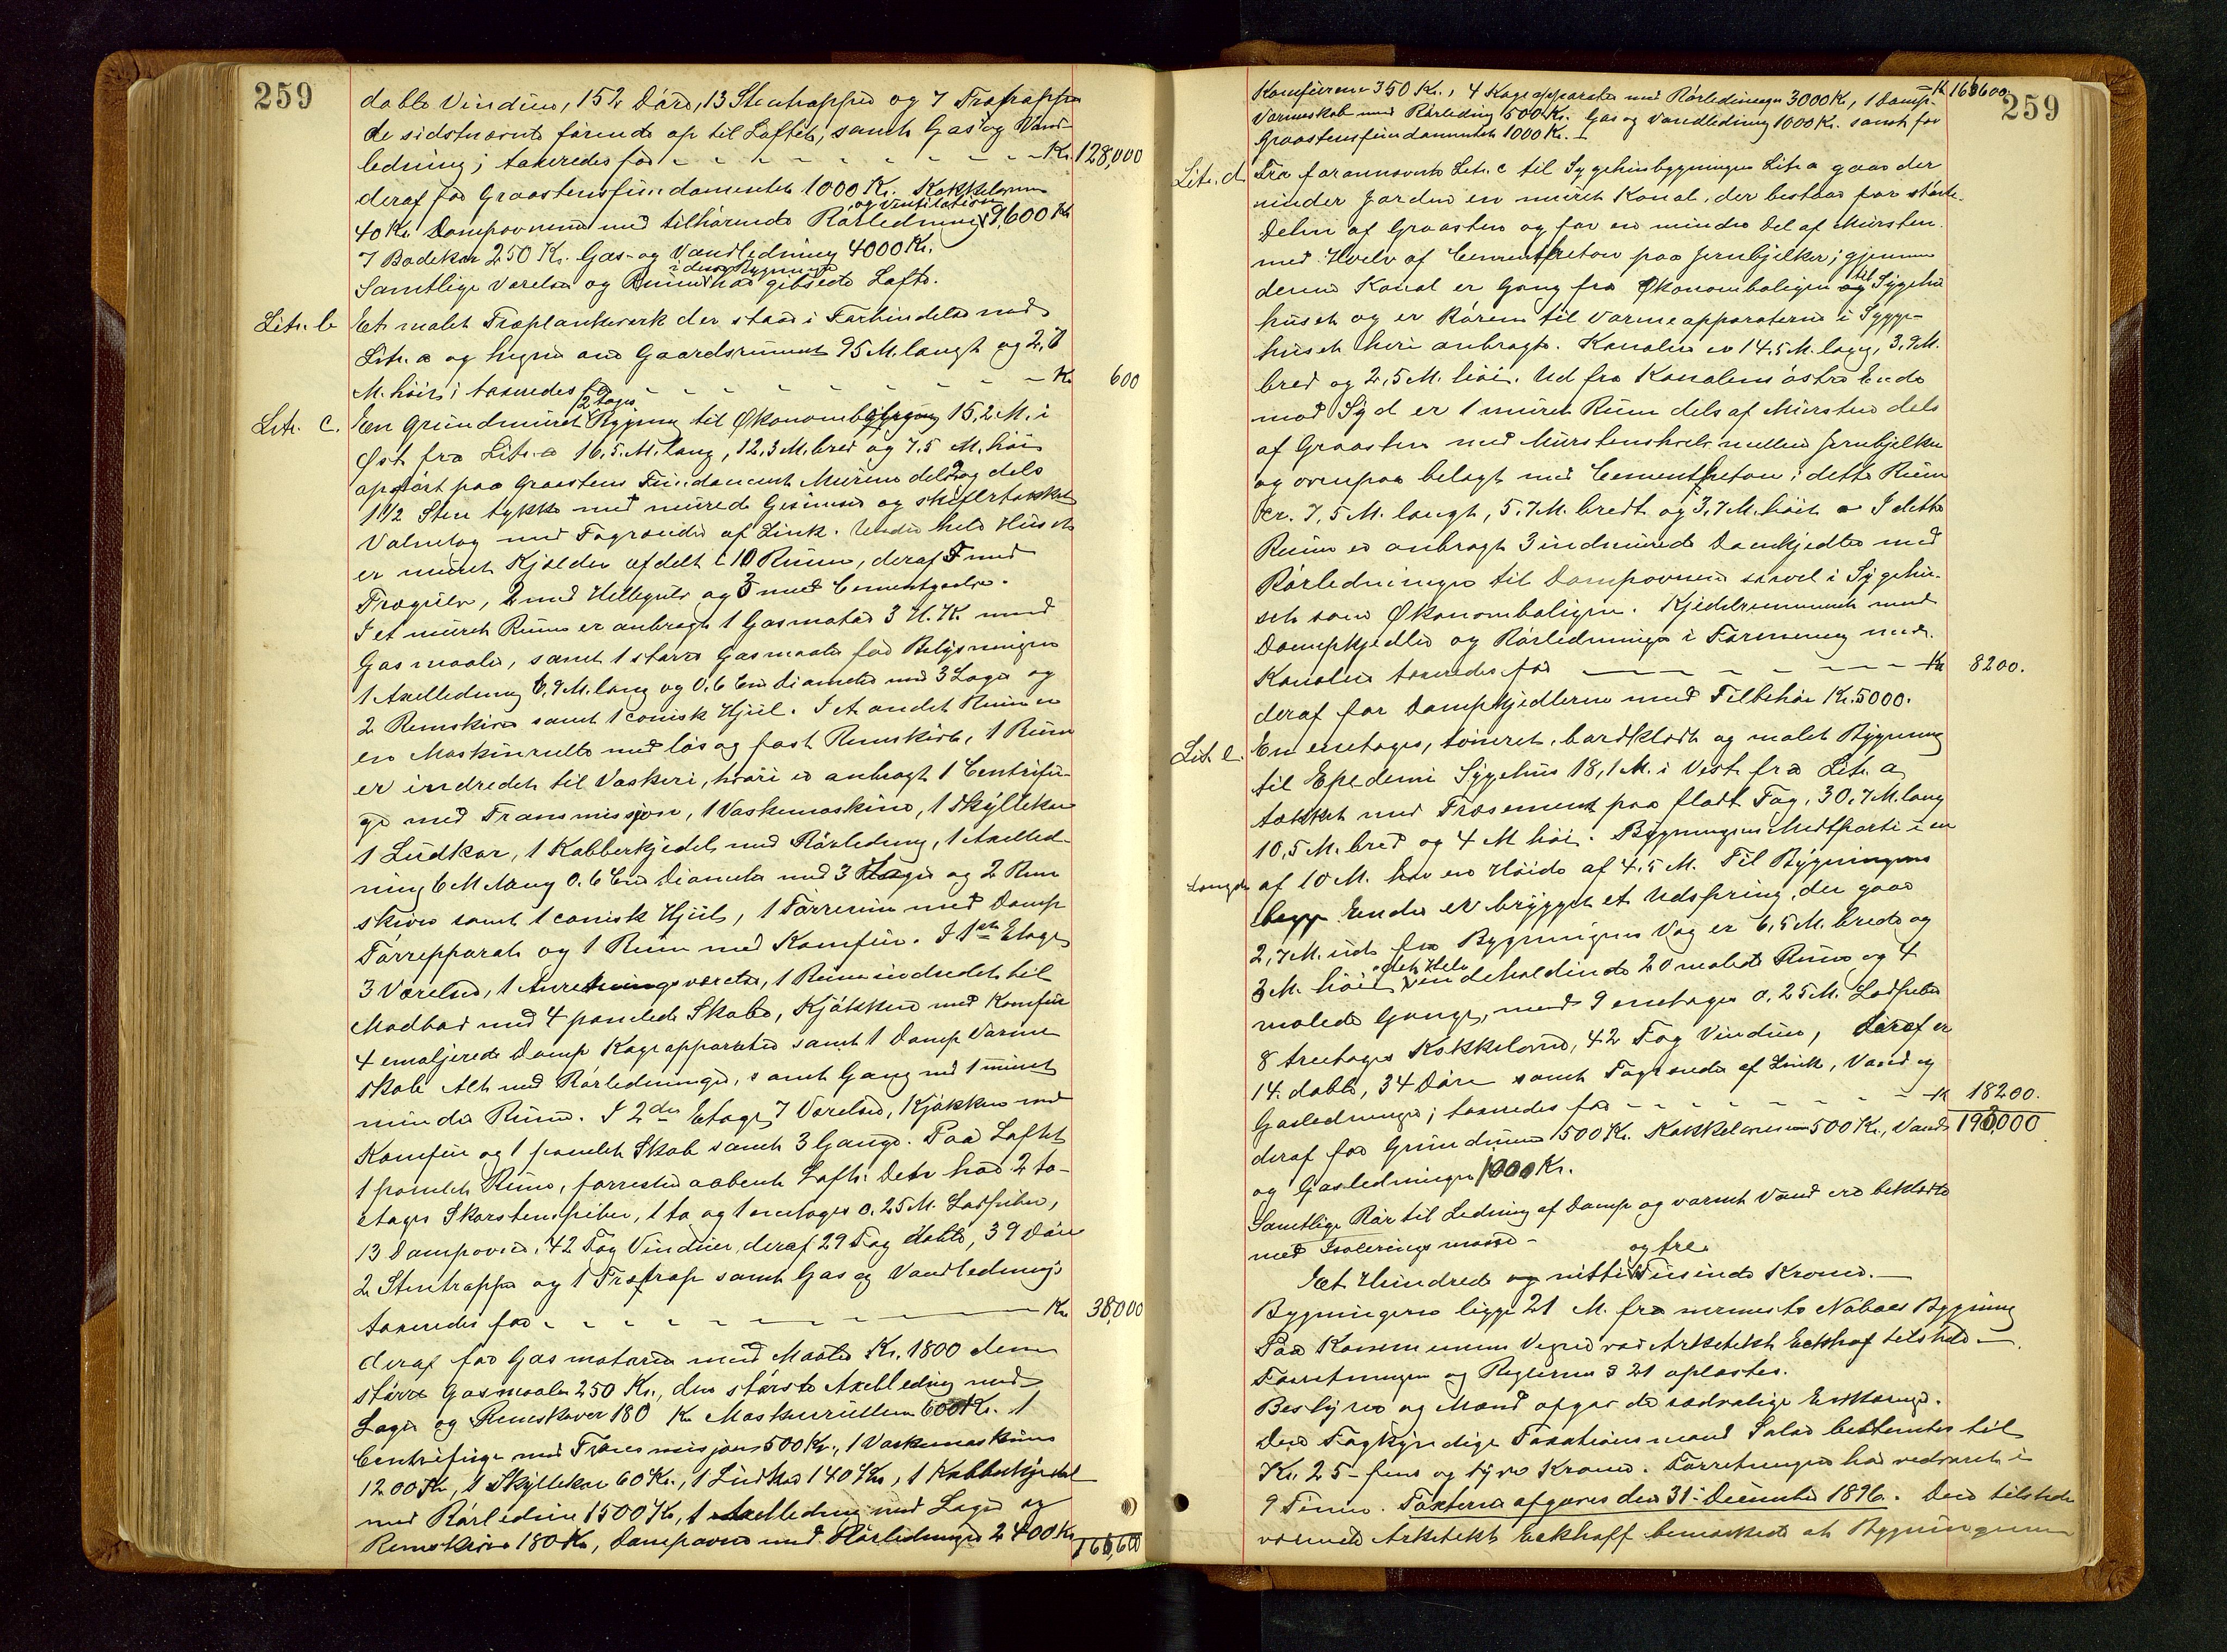 259
doble Vinduer, 152 Döre, 13 Stentrapper og 7 Trætrapper
de sidstnævnte förende op til Loftet, samt Gas og Vand-
ledning; taxeredes for - - - - - - - - - - Kr. 128,000
deraf for Graastensfundamentet 1000 Kr. Kakkelovne
40 Kr. Dampovnene med tilhörende Rörledning og Ventilation 9,600 Kr
7 Badekar 250 Kr. Gas- og Vandledning 4000 Kr.
Samtlige Værelser og Rum i denne Bygning har gibsede Lofte.
Litr. b Et malet Træplankeverk der staar i Forbindelse med
Litr. a og hegner om Gaardsrummet 95 M. langt og 2,8
M. höit; taxeredes for - - - - - - - - Kr 600
Litr. c. En grundmuret 2 Etages Bygning til Økonombygning 15,2 M. i
Øst fra Litr. a 16,5 M. lang, 12,3 M. bred og 7,5 M. höi
opfört paa Graastens Fundament Murene dels 2 og dels
1 1/2 Sten tykke med murede Gesimser og skifertækket
Valmetag med Tagrender af Zink. Under hele Huset
er muret Kjelder afdelt i 10 Rum, deraf 5 med
Trægulv, 2 med Hellegulv og 3 med Cementgulv.
I et muret Rum er anbragt 1 Gasmotor 3 H.K. med
Gasmaaler, samt 1 större Gasmaaler for Belysningen
1 Axelledning 6,9 M. lang og 0.6 Cm Diameter med 3 Lager og
2 Remskiver samt 1 conisk Hjul. I et andet Rum er
en Maskinrulle med lös og fast Remskive, 1 Rum
er indredet til Vaskeri, hvori er anbragt 1 Centrifu-
ge med Transmissjon, 1 Vaskemaskine, 1 Skyllekar
1 Ludkar, 1 Kobberkjedel med Rörledning, 1 Axelled-
ning 6 M lang 0.6 Cm Diameter med 3 Lager og 2 Rem
skiver samt 1 conisk Hjul, 1 Törrerum med Damp
Törreapparat og 1 Rum med Komfur. I 1ste Etage
3 Værelser, 1 Anretningsværelse, 1 Rum indredet til
Madbod med 4 panelede Skabe, Kjökken med Komfur
4 emaljerede Damp Kogeapparater samt 1 Damp Varme
skab Alt med Rörledninger, samt Gang med 1 muret
mindre Rum. I 2den Etage 7 Værelser, Kjökken med
Komfur og 1 panelet Skab samt 3 Gange. Paa Loftet
1 panelet Rum, forresten aabent Loft. Der har 2 to-
etages Skorstenspiber, 1 to og 1 enetages 0.25 M. Lodpiber,
13 Dampovne, 42 Fag Vinduer, deraf 29 Fag doble, 39 Döre
2 Stentrapper og 1 Trætrap samt Gas og Vandledning;
taxeredes for - - - - - - - - Kr. 38,000
deraf for Gasmotoren med Maaler Kr. 1800 den
större Gasmaaler 250 Kr., den störste Axelledning med
Lager og Remskiver 180 Kr Maskinrullen 600 Kr. 1
Centrifuge med Transmisjon 500 Kr., 1 Vaskemaskine
1200 Kr, 1 Skyllekar 60 Kr., 1 Ludkar 140 Kr, 1 Kobberkjedel
med Rörledning 1500 Kr, 1 Axelledning med Lager og
Remskiver 180 Kr, Dampovne med Rörledninger 2400 Kr
166,600
259
Komfurene 350 Kr., 4 Kogeapparater med Rörledninger 3000 Kr, 1 Damp- Kr 166600
Varmeskab med Rörledning 500 Kr. Gas og Vandledning 1000 Kr. samt for
Graastensfundamentet 1000 Kr.
Litr. d Fra forannævnte Litr. c til Sygehusbygningen Litr. a gaar der
under Jorden en muret Kanal, der bestaar for störste
Delen af Graasten og for en mindre Del af Mursten
med Hvelv af Cementbeton paa Jernbjelker; gjennem
denne Kanal er Gang fra Økonomboligen til Syge
huset og er Rörene til Varmeapparaterne i Syge-
huset heri anbragt. Kanalen er 14,5 M. lang, 3,9 M.
bred og 2,5 M. höi. Ud fra Kanalens östre Ende
mod Syd er 1 muret Rum dels af Mursten dels
af Graasten med Murstenshvelv mellem Jernbjelker
og ovenpaa belagt med Cementbeton; dette Rum
er 7,5 M. langt, 5.7 M. bredt og 3,7 M. höit. I dette
Rum er anbragt 3 indmurede Dampkjedler med
Rörledninger til Dampovnene saavel i Sygehu-
set som Økonomboligen. Kjedelrummet med
Dampkjedler og Rörledninger i Forening med
Kanalen taxeredes for - - - - - Kr 8200.
deraf for Dampkjedlerne med Tilbehör Kr. 5000.
Litr e. En enetages, tömret, bordklædt og malet Bygning
til Epedemi Sygehus 18,1 M. i Vest fra Litr. a
tækket med Træsement paa fladt Tag, 30,7 M. lang
10,5 M. bred og 4 M höi. Bygningens Midtparti i en
Længde af 10 M. har en Höide af 4,5 M. Til Bygningens
begge Ender er bygget et Udspring, der gaar
2,7 M. ud fra Bygningens Væg er 6,5 M. brede og
3 M. höie, det Hele indeholdende 20 malede Rum og 4
malede Gange, med 9 enetages 0,25 M. Lodpiber
8 treetages Kakkelovne, 42 Fag Vinduer, deraf er
14. doble, 34 Döre samt Tagrender af Zink, Vand og
Gasledninger; taxeredes for - - - - - - Kr 18200.
deraf for Grundmur 1500 Kr. Kakkelovnene 500 Kr., Vand- 193,000
og Gasledninger 1000 Kr.
Samtlige Rör til Ledning af Damp og varmt Vand ere beklædte
med Isolerings masse -
Et Hundrede og nitti og tre Tusinde Kroner. -
Bygningerne ligger 21 M. fra nærmeste Naboes Bygning
Paa Kommunens Vegne var Arkitekt Eckhoff tilstede -
Forretningen og Reglernes § 21 oplæstes.
Bestyrer og Mænd afgav de sædvanlige Erklæringer.
Den Fagkyndige Taxationsmand Salær bestemtes til
Kr. 25 - fem og tyve Kroner. Forretningen har vedvaret i
9 Timer. Taxterne afgaves den 31 December 1896. Den tilstede
værende Arkitekt Eckhoff bemærkede at Bygningerne